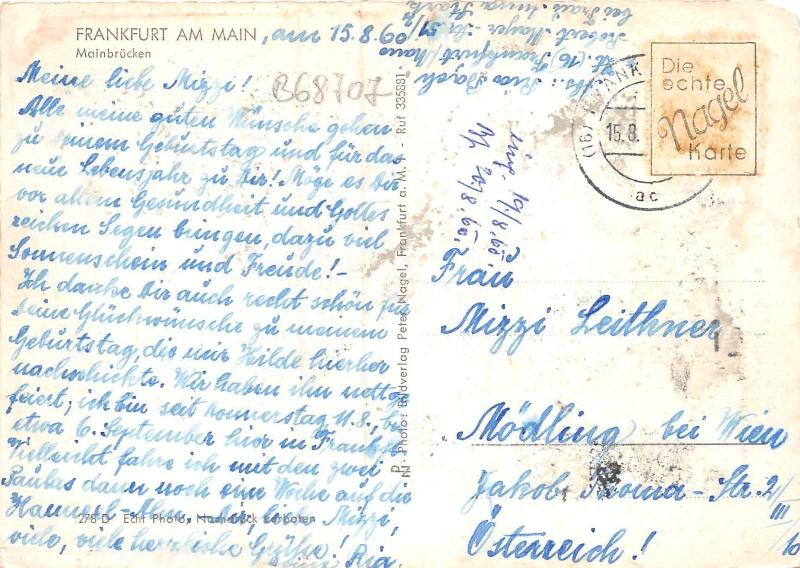 FRANKFURT AM MAIN, am 15.8.60
Mainbrücken
Meine liebe Mizzi!
B68707
Alle meine guten Wünsche gehen
zu Deinem Geburtstag und für das
neue Lebensjahr zu Dir! Möge es Dir
vor allem Gesundheit und Gottes
reichen Segen bringen, dazu viel
Sonnenschein und Freude!-
Ich danke Dir auch recht schön für
Deine Glückwünsche zu meinem
Geburtstag, die mir Hilde hierher
nachschickte. Wir haben ihn nett ge-
feiert; ich bin seit Donnerstag 11.8., bis
etwa 6. September hier in Frankft.
Vielleicht fahre ich mit den zwei
dann noch eine Woche auf die
liebe Mizzi,
viele, viele herzliche Grüße!
Deine Ria.
278 D Echt Photo, Nachdruck verboten
Photo: Bildverlag Peter Nagel, Frankfurt a. M. 1 - Ruf 335881
Abs.: Ria
(16) Frankfurt/Main
Robert Mayer-Str.
bei Frau Anna
Die
echte
Nagel
Karte
(16) FRANK
15.8.
ac
19./8.60.
20/8.60.
Frau
Mizzi Leithner
Mödling bei Wien
Jakob Thoma-Str. 2/
III/
10
Österreich!